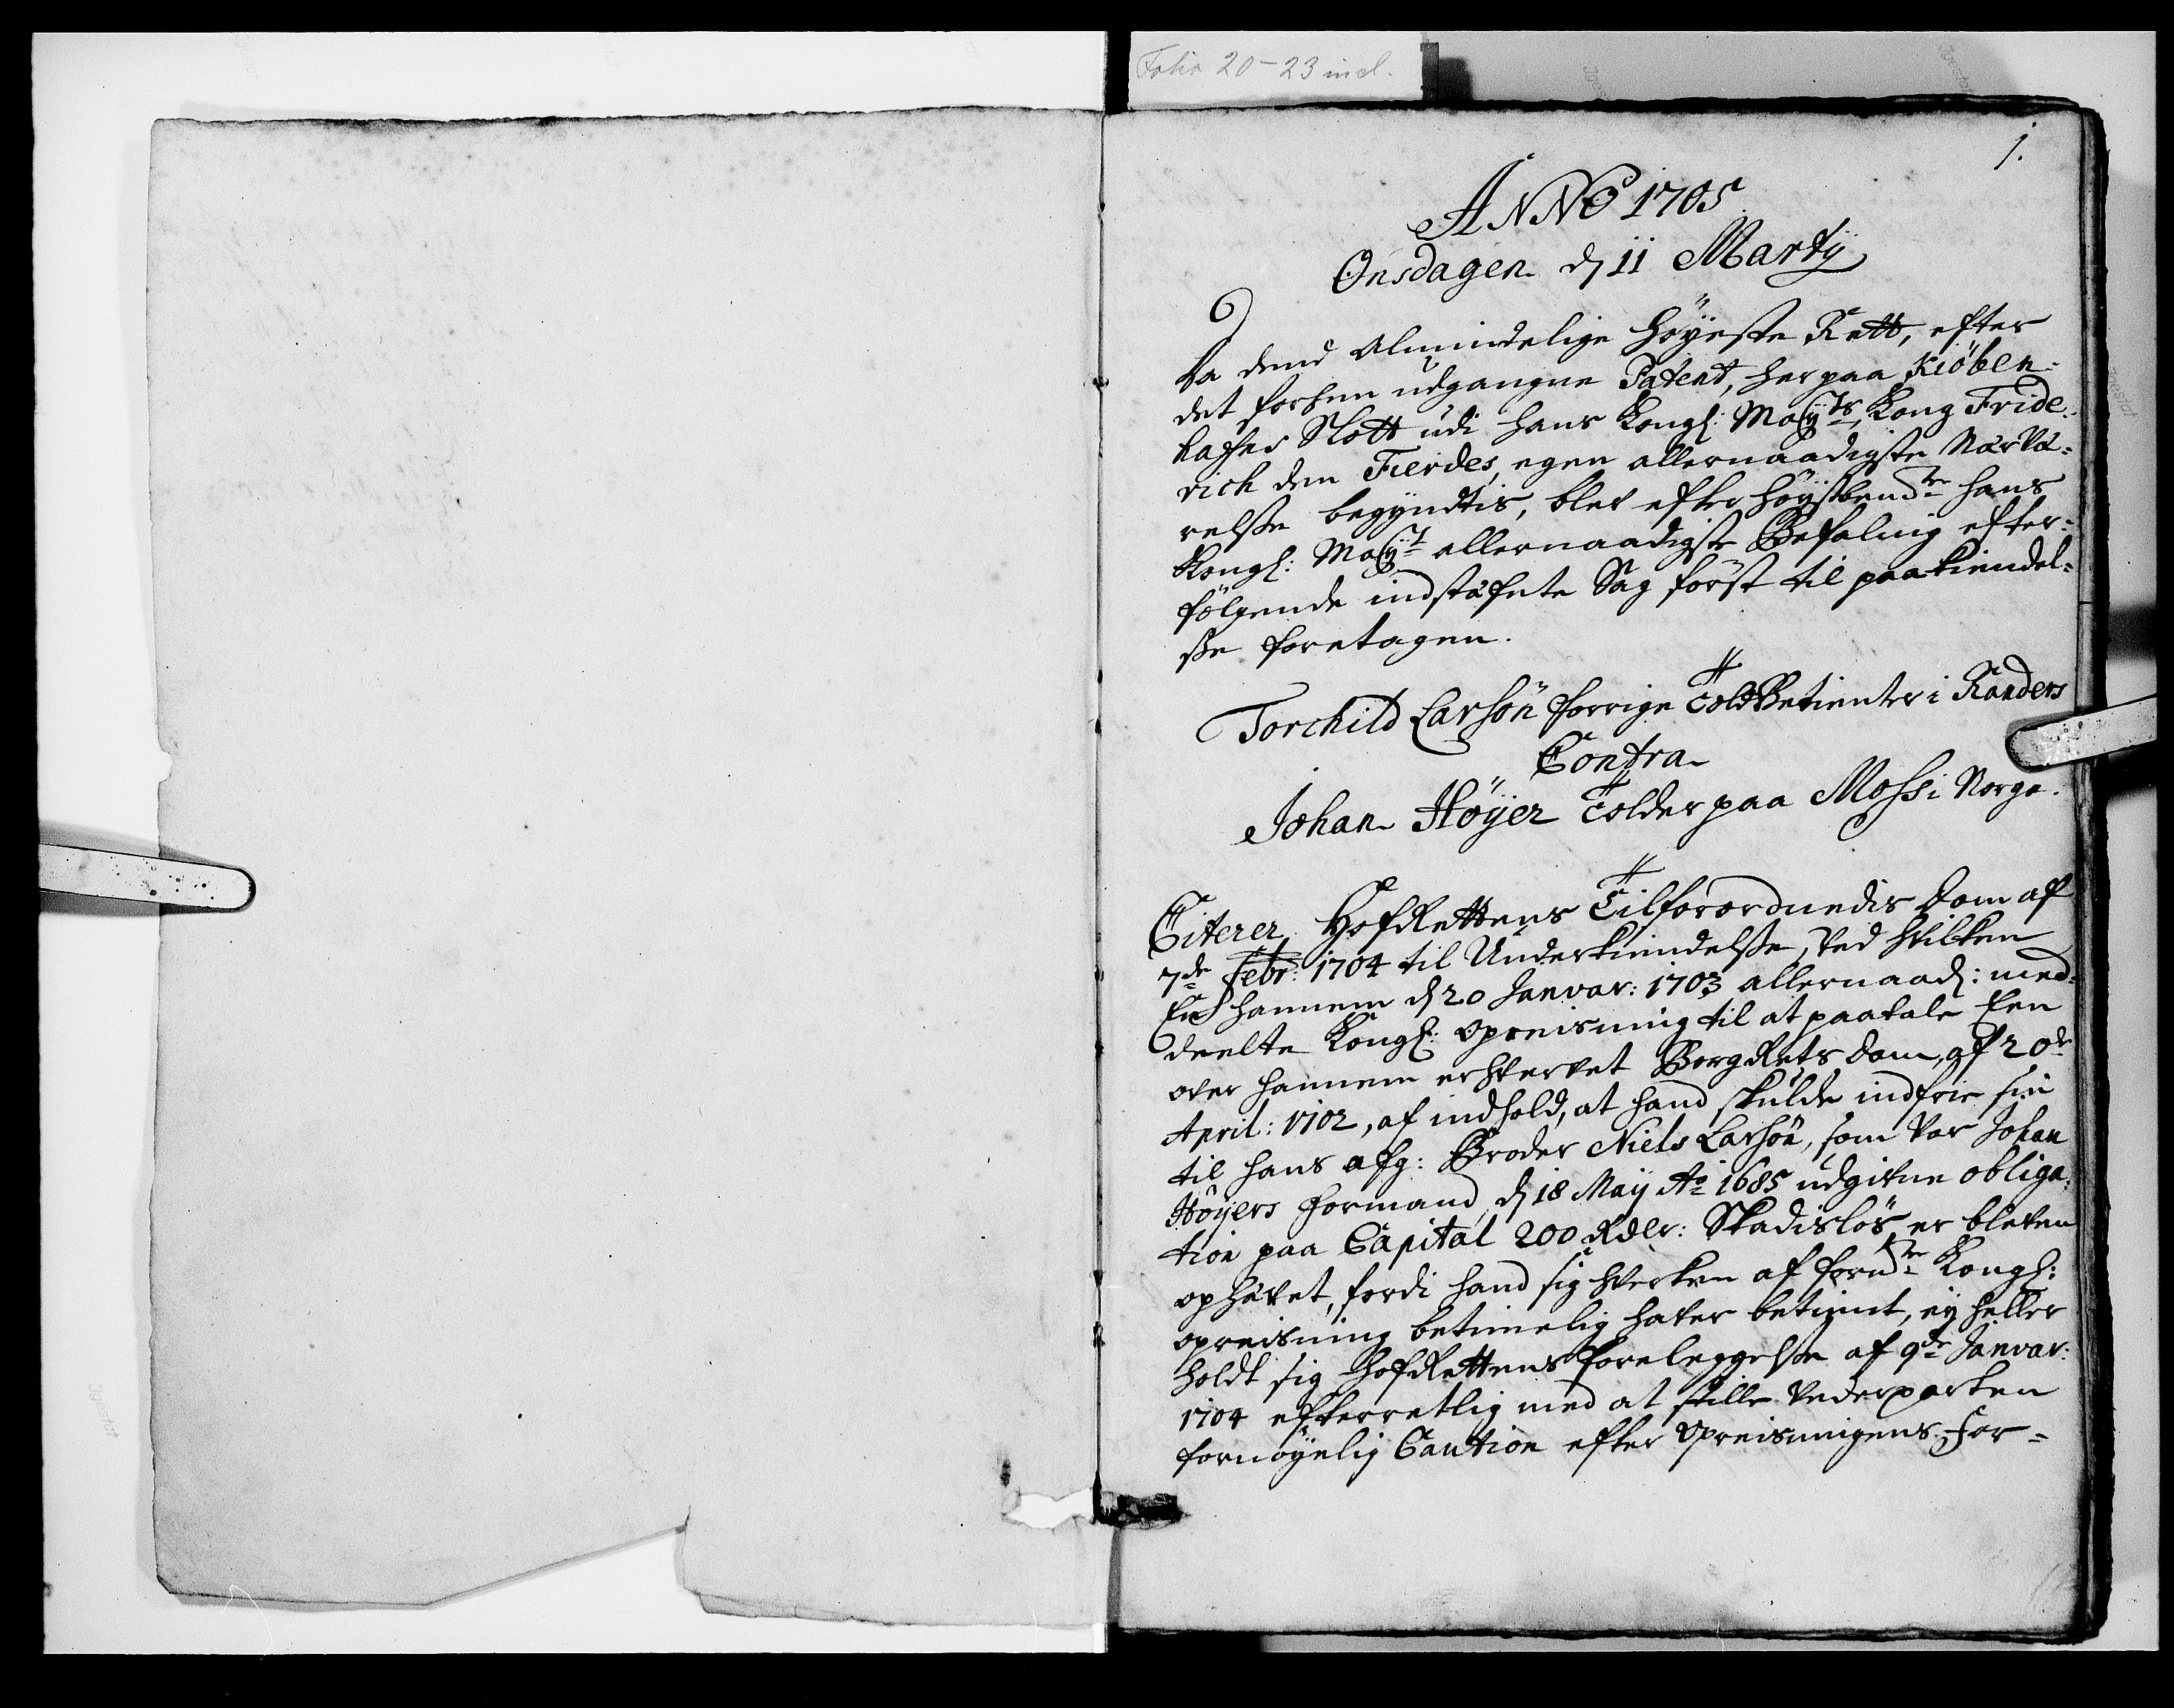 Folio 20-23 incl.
1.
ANNO 1705
Onsdagen d 11 Martij
Da dend Almindelige Höyeste Rett, efter
det forhen udgangne Patent, her paa Kiöben-
hafns Slott udi hans Kongl: Maÿts, Kong Fride-
rich den Fierdes, egen allernaadigste Nærvæ-
relsse begyndtis, blev efter höystbemdte hans
Kongl: Maÿt allernaadigste Befaling efter-
fölgende indstæfnte Sag först til paakiendel-
sse foretagen.
Torchild Larsön forrige Told Betienter i Randers
Contra
Johan Höyer Tolder paa Moss i Norge.
Citerer HofRettens Tilforordnedis Dom af
7de Febr: 1704 til Underkiendelsse, ved hvilken
En hannem d 20 Janvar: 1703 allernaad: med-
deelte Kongl: opreisning til at paatale Een
over hannem erhvervet BorgRets Dom, af 20de
April: 1702, af indhold, at hand skulde indfrie sin
til hans afg: Broder Niels Larsön, som var Johan
Höyers Formand, d 18 Maÿ Ao 1685 udgivne obliga-
tion paa Capital 200 Rdlr: Skadislös er bleven
ophævet, fordi hand sig hverken af fornte Kongl:
opreisning betimelig haver betient, eÿ heller
holdt sig HofRettens Foreleggelsse af 9de Janvar:
1704 efterretlig med at stille Vederparten
fornöyelig Caution efter Opreisningens For-